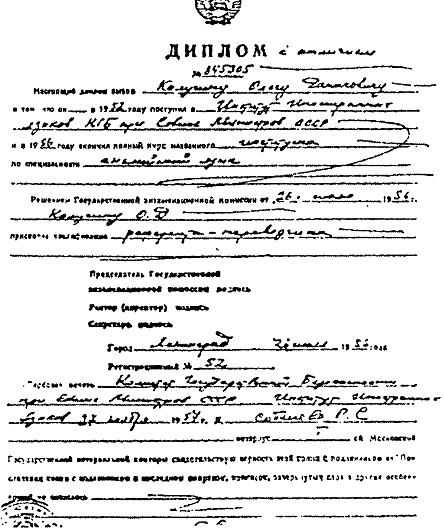 ДИПЛОМ с отличием
№ 845305
Настоящий диплом выдан Калугину Олегу Даниловичу
в том что он в 1952 году поступил в Институт Иностранных
языков КГБ при Совете Министров СССР
и в 1956 году окончил полный курс названного института
по специальности английский язык
Решением Государственной экзаменационной комиссии от 26 1956 г.
Калугину О. Д
присвоена квалификация референта-переводчика
Председатель Государственной
экзаменационной комиссии подпись
Ректор (директор) подпись
Секретарь подпись
Город Ленинград 1956 года
Регистрационный № 52
Гербовая печать Комитет Государственной Безопасности
при Совете Министров СССР Институт Иностранных
языков 27 ноября 1957 г. я
нотариус ой Московской
Государственной нотариальной конторы свидетельствую верность этой копии с подлинником её. При
сличении копии с подлинником в последнем подчисток, приписок, зачеркнутых слов и других особен-
ностей не оказалось